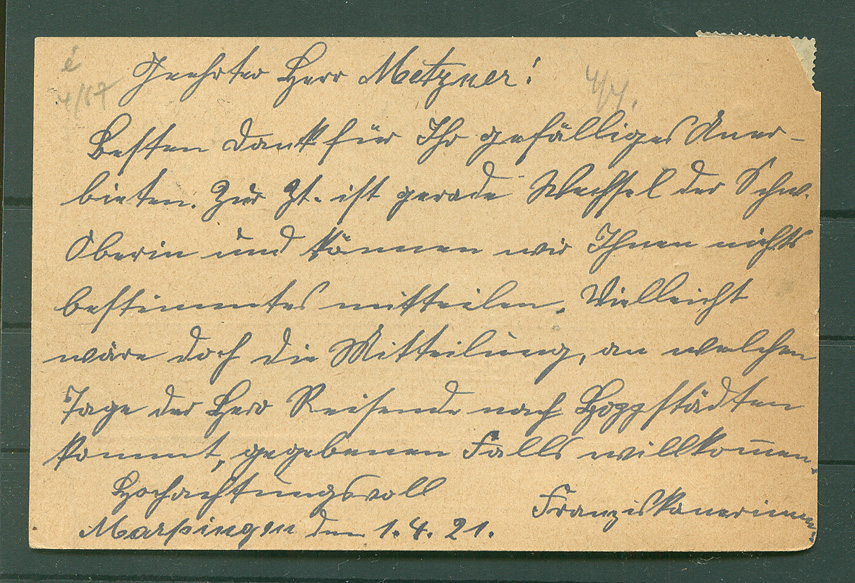 Geehrter Herr Metzner!
4/4.
4/67
Besten Dank für Ihr gefälliges Aner-
bieten. Zur Zt. ist gerade Wechsel der Schw.
Oberin und können wir Ihnen nichts
bestimmtes mitteilen. Vielleicht
wäre doch die Mitteilung, an welchen
Tage der Herr Reisende nach Hoppstädten
kommt, gegebenen Falls willkommen.
Hochachtungsvoll
Franziskanerinnen
Marpingen den 1.4.21.